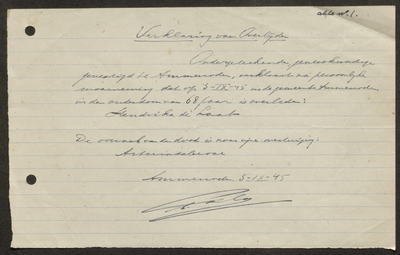 acte no. 1.
Verklaring van Overlijden
Ondergeteekende, geneeskundige
gevestigd te Ammerzoden, verklaart na persoonlijke
waarneming dat op 3-IX-45 in de gemeente Ammerzoden
in de ouderdom van 68 jaar is overleden:
Hendrika de Laat
De oorzaak van de dood is naar zijn overtuiging:
Arteriosclerose
Ammerzoden 3-IX-45